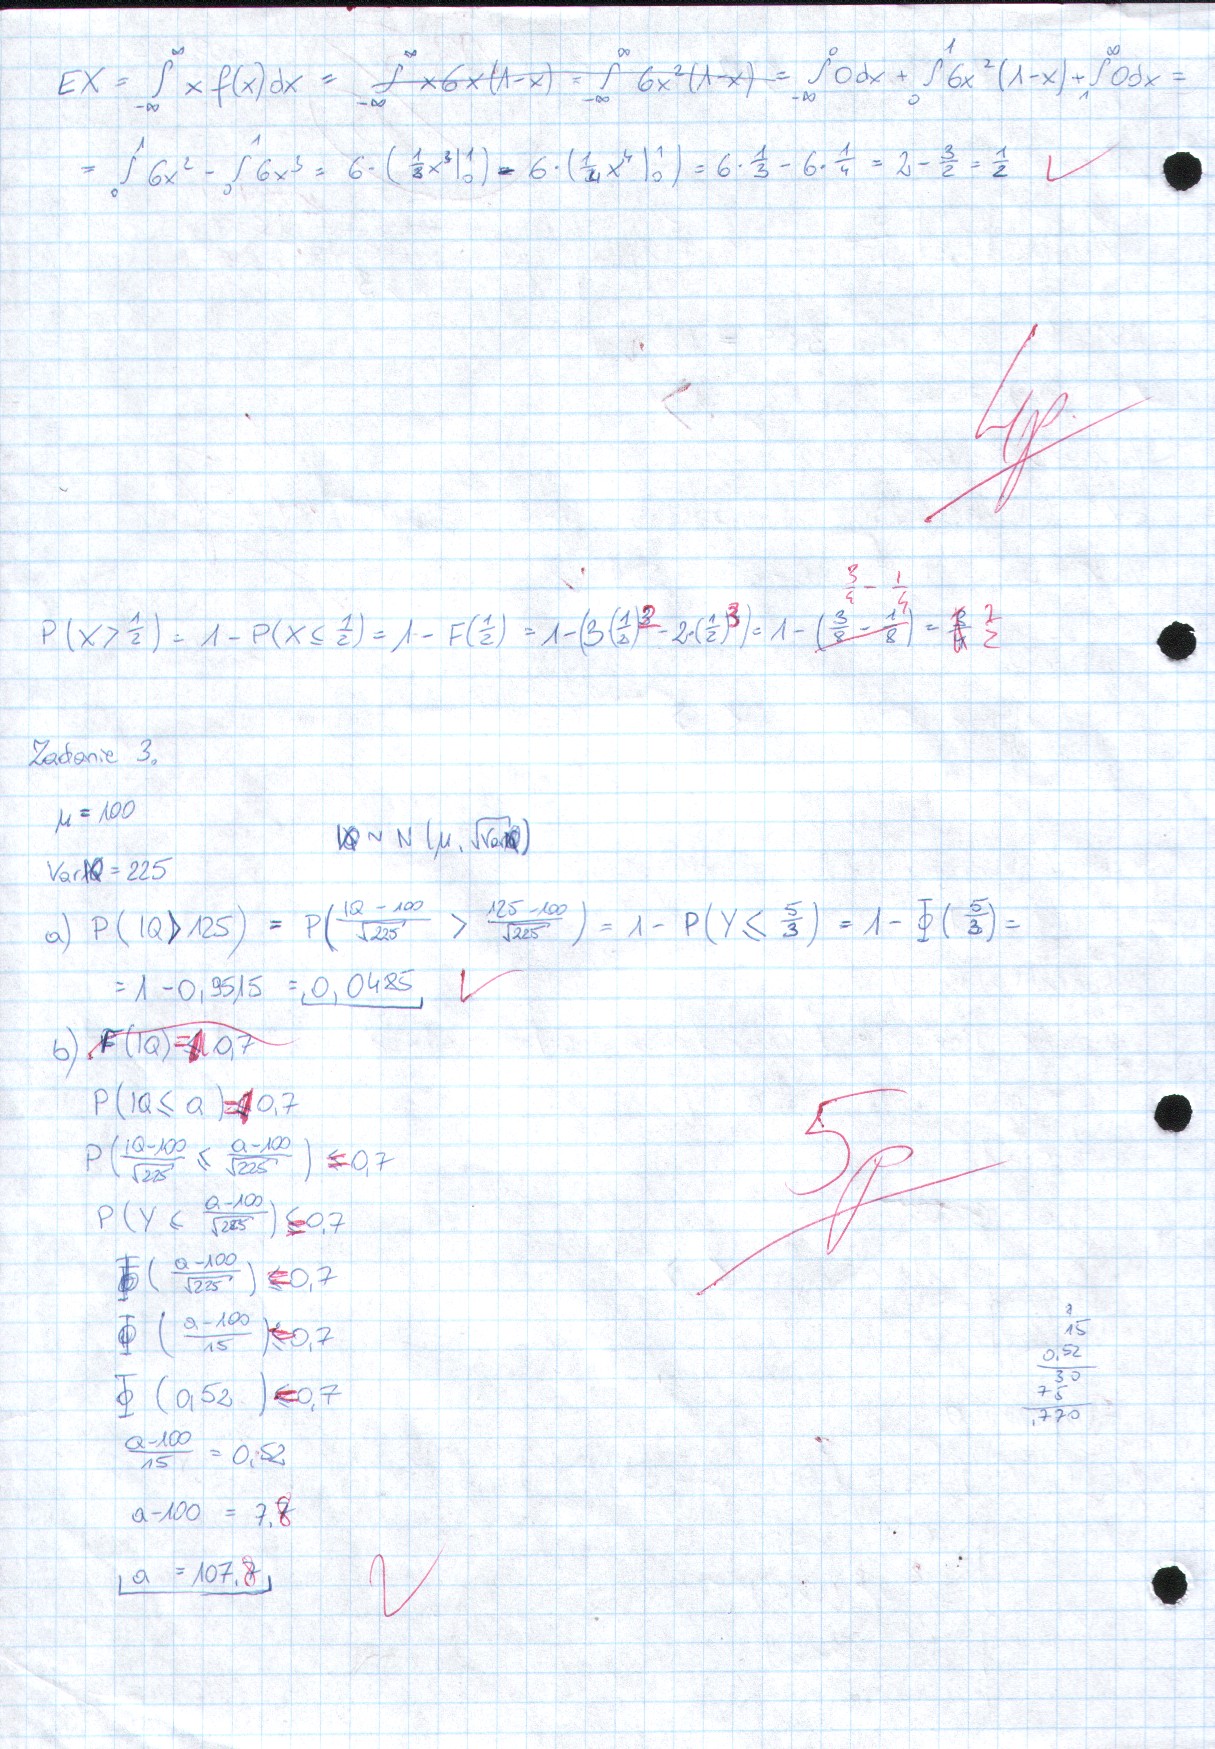 EX = ∫_{-∞}^{∞} x f(x)dx = ∫_{-∞}^{∞} x 6x(1-x) = ∫_{-∞}^{∞} 6x²(1-x) = ∫_{-∞}^{0} 0dx + ∫_{0}^{1} 6x²(1-x) + ∫_{1}^{∞} 0dx =
= ∫_{0}^{1} 6x² - ∫_{0}^{1} 6x³ = 6·(1/3 x³|_{0}^{1}) - 6·(1/4 x⁴|_{0}^{1}) = 6·1/3 - 6·1/4 = 2 - 3/2 = 1/2 ✓
4p.
3/4 - 1/4
P(X>1/2) = 1 - P(X≤1/2) = 1 - F(1/2) = 1-(3(1/2)² - 2·(1/2)³) = 1 - (3/8 - 1/8) = 1/2
Zadanie 3.
μ = 100
IQ ~ N(μ, √VarIQ)
VarIQ = 225
a) P(IQ>125) = P((IQ-100)/√225 > (125-100)/√225) = 1 - P(Y ≤ 5/3) = 1 - Φ(5/3) =
= 1 - 0,9515 = 0,0485 ✓
b) F(IQ) = 0,7
P(IQ ≤ a) = 0,7
P((IQ-100)/√225 ≤ (a-100)/√225) = 0,7
P(Y ≤ (a-100)/√225) = 0,7
Φ((a-100)/√225) = 0,7
Φ((a-100)/15) = 0,7
Φ(0,52) = 0,7
(a-100)/15 = 0,52
a-100 = 7,8
a = 107,8 ✓
5p
1
15
0,52
30
75
,770